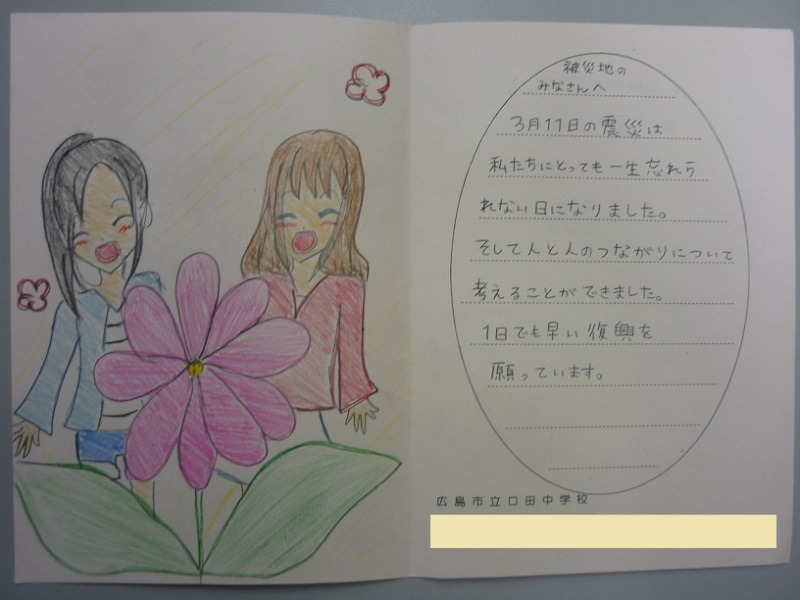 被災地の
みなさんへ
3月11日の震災は
私たちにとっても一生忘れら
れない日になりました。
そして人と人のつながりについて
考えることができました。
1日でも早い復興を
願っています。
広島市立口田中学校